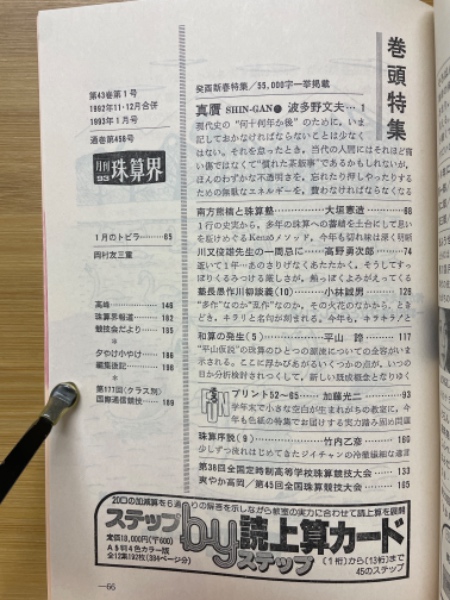 巻頭特集
癸酉新春特集／55,000字一挙掲載
真贋 SHIN-GAN❶ 波多野文夫… 1
現代史の“何十何年か後”のために、いま
記しておかなければならないことは少なく
はない。それを怠ったとき、当代の人間にはそれほど痛
い傷ではなくて“慣れた茶飯事”であるかもしれないが、
ほんのわずかな不透明さを、忘れたり押しやったりする
ための無駄なエネルギーを、費わなければならなくなる
南方熊楠と珠算塾…………大垣憲造……66
1行の史実から、多年の珠算への蓄積を土台にして思い
を駈けめぐるKenzōメソッド。今年も切れ味は深く明晰
川又俊雄先生の一周忌に……高野勇次郎……74
逝いて1年…あのさりげなくあたたかく、そうしてすっ
ぽりくるみつける厳しさが、熱っぽくよみがえってくる
塾長愚作川柳談義(10)………小林誠男……126
“多作”なのか“乱作”なのか。その火花のなかから、とき
どき、キラリと名句が刻まれる。今年も、キラキラ！と
和算の発生(5)………平山 諦……117
“平山仮説”の珠算のひとつの源流についての全容がいま
示される。ここに浮かびあがるいくつかの点が、いつの
日か分析検討されつくして、新しい既成概念となりゆく
プリント52～65……加藤光二……93
学年末で小さな空白が生まれがちの教室に、今
年も色紙の特集でお届けする実力踏み固め問題
珠算序説(9)…………竹内乙彦……180
少しずつ後れはじめてきたジイチャンの冷徹繊細な遺言
第38回全国定時制高等学校珠算競技大会……133
爽やか高岡／第45回全国珠算競技大会……165
第43巻第1号
1992年11･12月合併
1993年1月号
通巻第498号
月刊 93 珠算界
1月のトビラ………65
岡村友三童
高峰………146
珠算界報道………182
競技会だより……185
＊
夕やけ小やけ……186
編集後記………198
＊
第177回(クラス別)
国際通信競技……189
20口の加減算を6通りの解答を示しながら教室の実力に合わせて読上算を展開
ステップbyステップ 読上算カード
定価18,000円(〒600)
A5判4色カラー版
全12集192枚(384ページ分)
（1桁）から（13桁）まで
45のステップ
—66